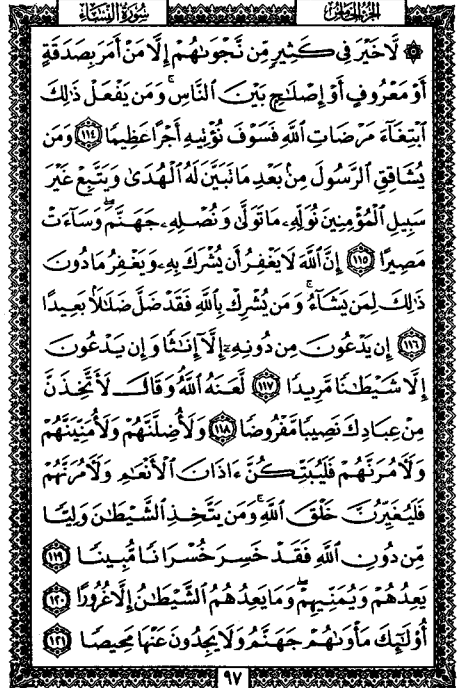 سورة النساء الجزء الخامس
۞ لَّا خَيْرَ فِي كَثِيرٍ مِّن نَّجْوَىٰهُمْ إِلَّا مَنْ أَمَرَ بِصَدَقَةٍ
أَوْ مَعْرُوفٍ أَوْ إِصْلَٰحٍۭ بَيْنَ النَّاسِ ۚ وَمَن يَفْعَلْ ذَٰلِكَ
ٱبْتِغَآءَ مَرْضَاتِ ٱللَّهِ فَسَوْفَ نُؤْتِيهِ أَجْرًا عَظِيمًا ﴿١١٤﴾ وَمَن
يُشَاقِقِ ٱلرَّسُولَ مِنۢ بَعْدِ مَا تَبَيَّنَ لَهُ ٱلْهُدَىٰ وَيَتَّبِعْ غَيْرَ
سَبِيلِ ٱلْمُؤْمِنِينَ نُوَلِّهِۦ مَا تَوَلَّىٰ وَنُصْلِهِۦ جَهَنَّمَ ۖ وَسَآءَتْ
مَصِيرًا ﴿١١٥﴾ إِنَّ ٱللَّهَ لَا يَغْفِرُ أَن يُشْرَكَ بِهِۦ وَيَغْفِرُ مَا دُونَ
ذَٰلِكَ لِمَن يَشَآءُ ۚ وَمَن يُشْرِكْ بِٱللَّهِ فَقَدْ ضَلَّ ضَلَٰلًۢا بَعِيدًا
﴿١١٦﴾ إِن يَدْعُونَ مِن دُونِهِۦٓ إِلَّآ إِنَٰثًا وَإِن يَدْعُونَ
إِلَّا شَيْطَٰنًا مَّرِيدًا ﴿١١٧﴾ لَّعَنَهُ ٱللَّهُ ۘ وَقَالَ لَأَتَّخِذَنَّ
مِنْ عِبَادِكَ نَصِيبًا مَّفْرُوضًا ﴿١١٨﴾ وَلَأُضِلَّنَّهُمْ وَلَأُمَنِّيَنَّهُمْ
وَلَءَامُرَنَّهُمْ فَلَيُبَتِّكُنَّ ءَاذَانَ ٱلْأَنْعَٰمِ وَلَءَامُرَنَّهُمْ
فَلَيُغَيِّرُنَّ خَلْقَ ٱللَّهِ ۚ وَمَن يَتَّخِذِ ٱلشَّيْطَٰنَ وَلِيًّا
مِّن دُونِ ٱللَّهِ فَقَدْ خَسِرَ خُسْرَانًا مُّبِينًا ﴿١١٩﴾
يَعِدُهُمْ وَيُمَنِّيهِمْ ۖ وَمَا يَعِدُهُمُ ٱلشَّيْطَٰنُ إِلَّا غُرُورًا ﴿١٢٠﴾
أُو۟لَٰٓئِكَ مَأْوَىٰهُمْ جَهَنَّمُ وَلَا يَجِدُونَ عَنْهَا مَحِيصًا ﴿١٢١﴾
٩٧